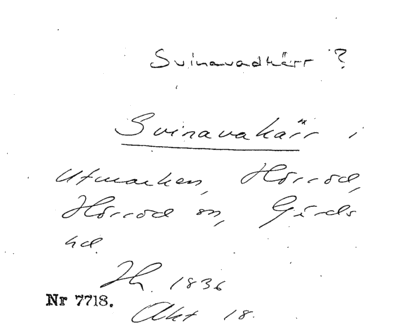 Svinavadkärr ?
Svinavakärr i
Utmarken, Hörröd,
Hörröd sn, Gärds
hd.
Jh. 1836
Nr 7718.
Akt 18.